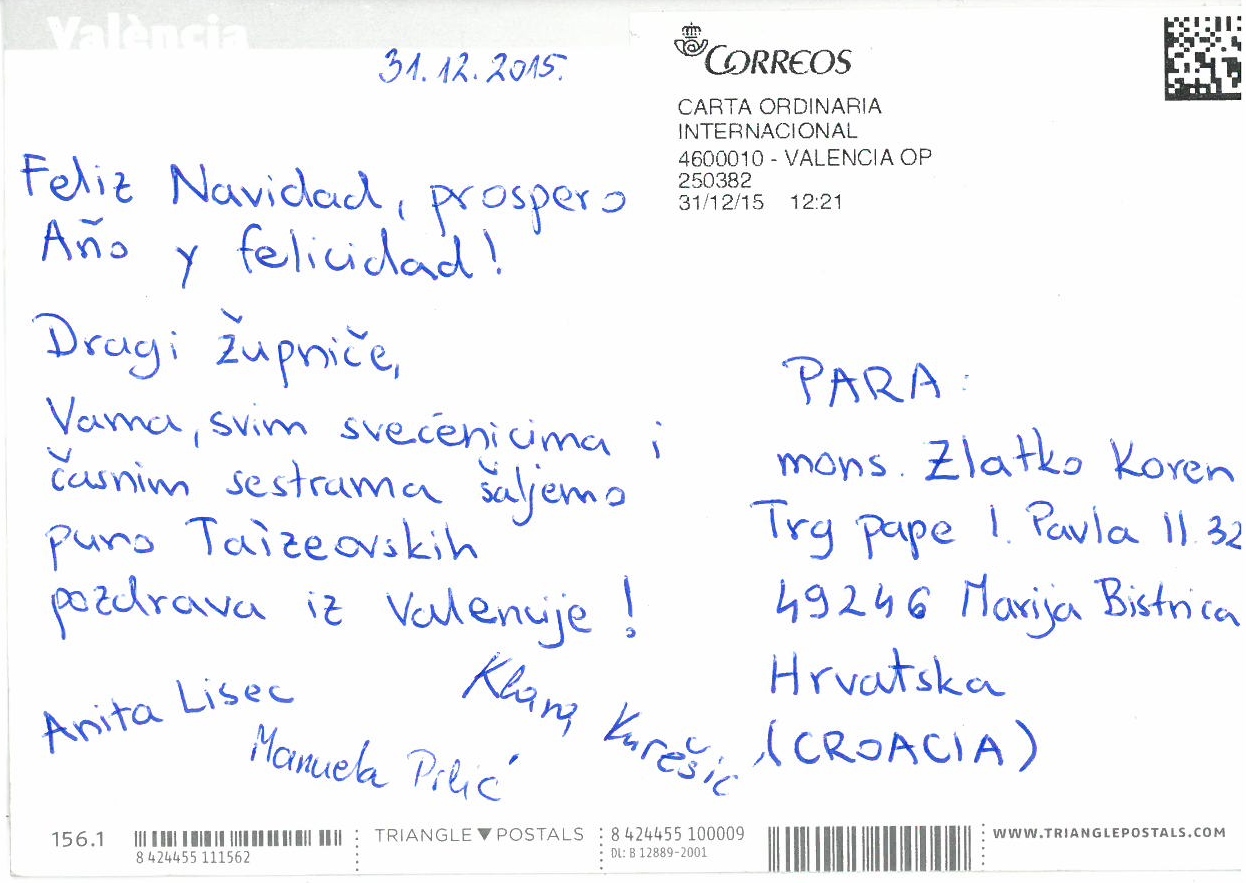 València
31.12.2015.
Feliz Navidad, prospero
Año y felicidad!
Dragi župniče,
Vama, svim svećenicima i
časnim sestrama šaljemo
puno Taizeovskih
pozdrava iz Valencije!
Anita Lisec
Klara Kurešić
Manuela Prlić
CORREOS
CARTA ORDINARIA
INTERNACIONAL
4600010 - VALENCIA OP
250382
31/12/15 12:21
PARA:
mons. Zlatko Koren
Trg pape I. Pavla II. 32
49246 Marija Bistrica
Hrvatska
(CROACIA)
156.1
8 424455 111562
TRIANGLE▼POSTALS
8 424455 100009
DL: B 12889-2001
WWW.TRIANGLEPOSTALS.COM